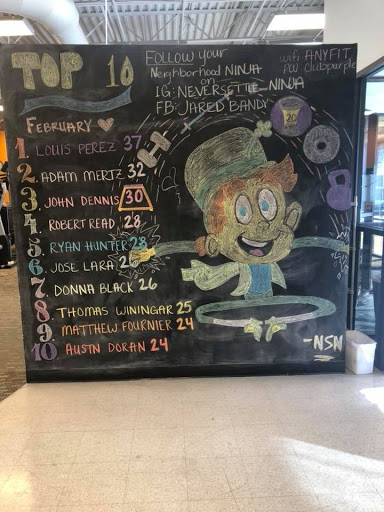 TOP 10
February
1. LOUIS PEREZ 37
2. ADAM MERTZ 32
3. JOHN DENNIS 30
4. ROBERT READ 28
5. RYAN HUNTER 28
6. JOSE LARA 26
7. DONNA BLACK 26
8. THOMAS WININGAR 25
9. MATTHEW FOURNIER 24
10. AUSTN DORAN 24
FOLLOW your
Neighborhood NINJA
on
IG: NEVERSETTLE_NINJA
FB: JARED BANDY
with ANYFIT
20
-NSN